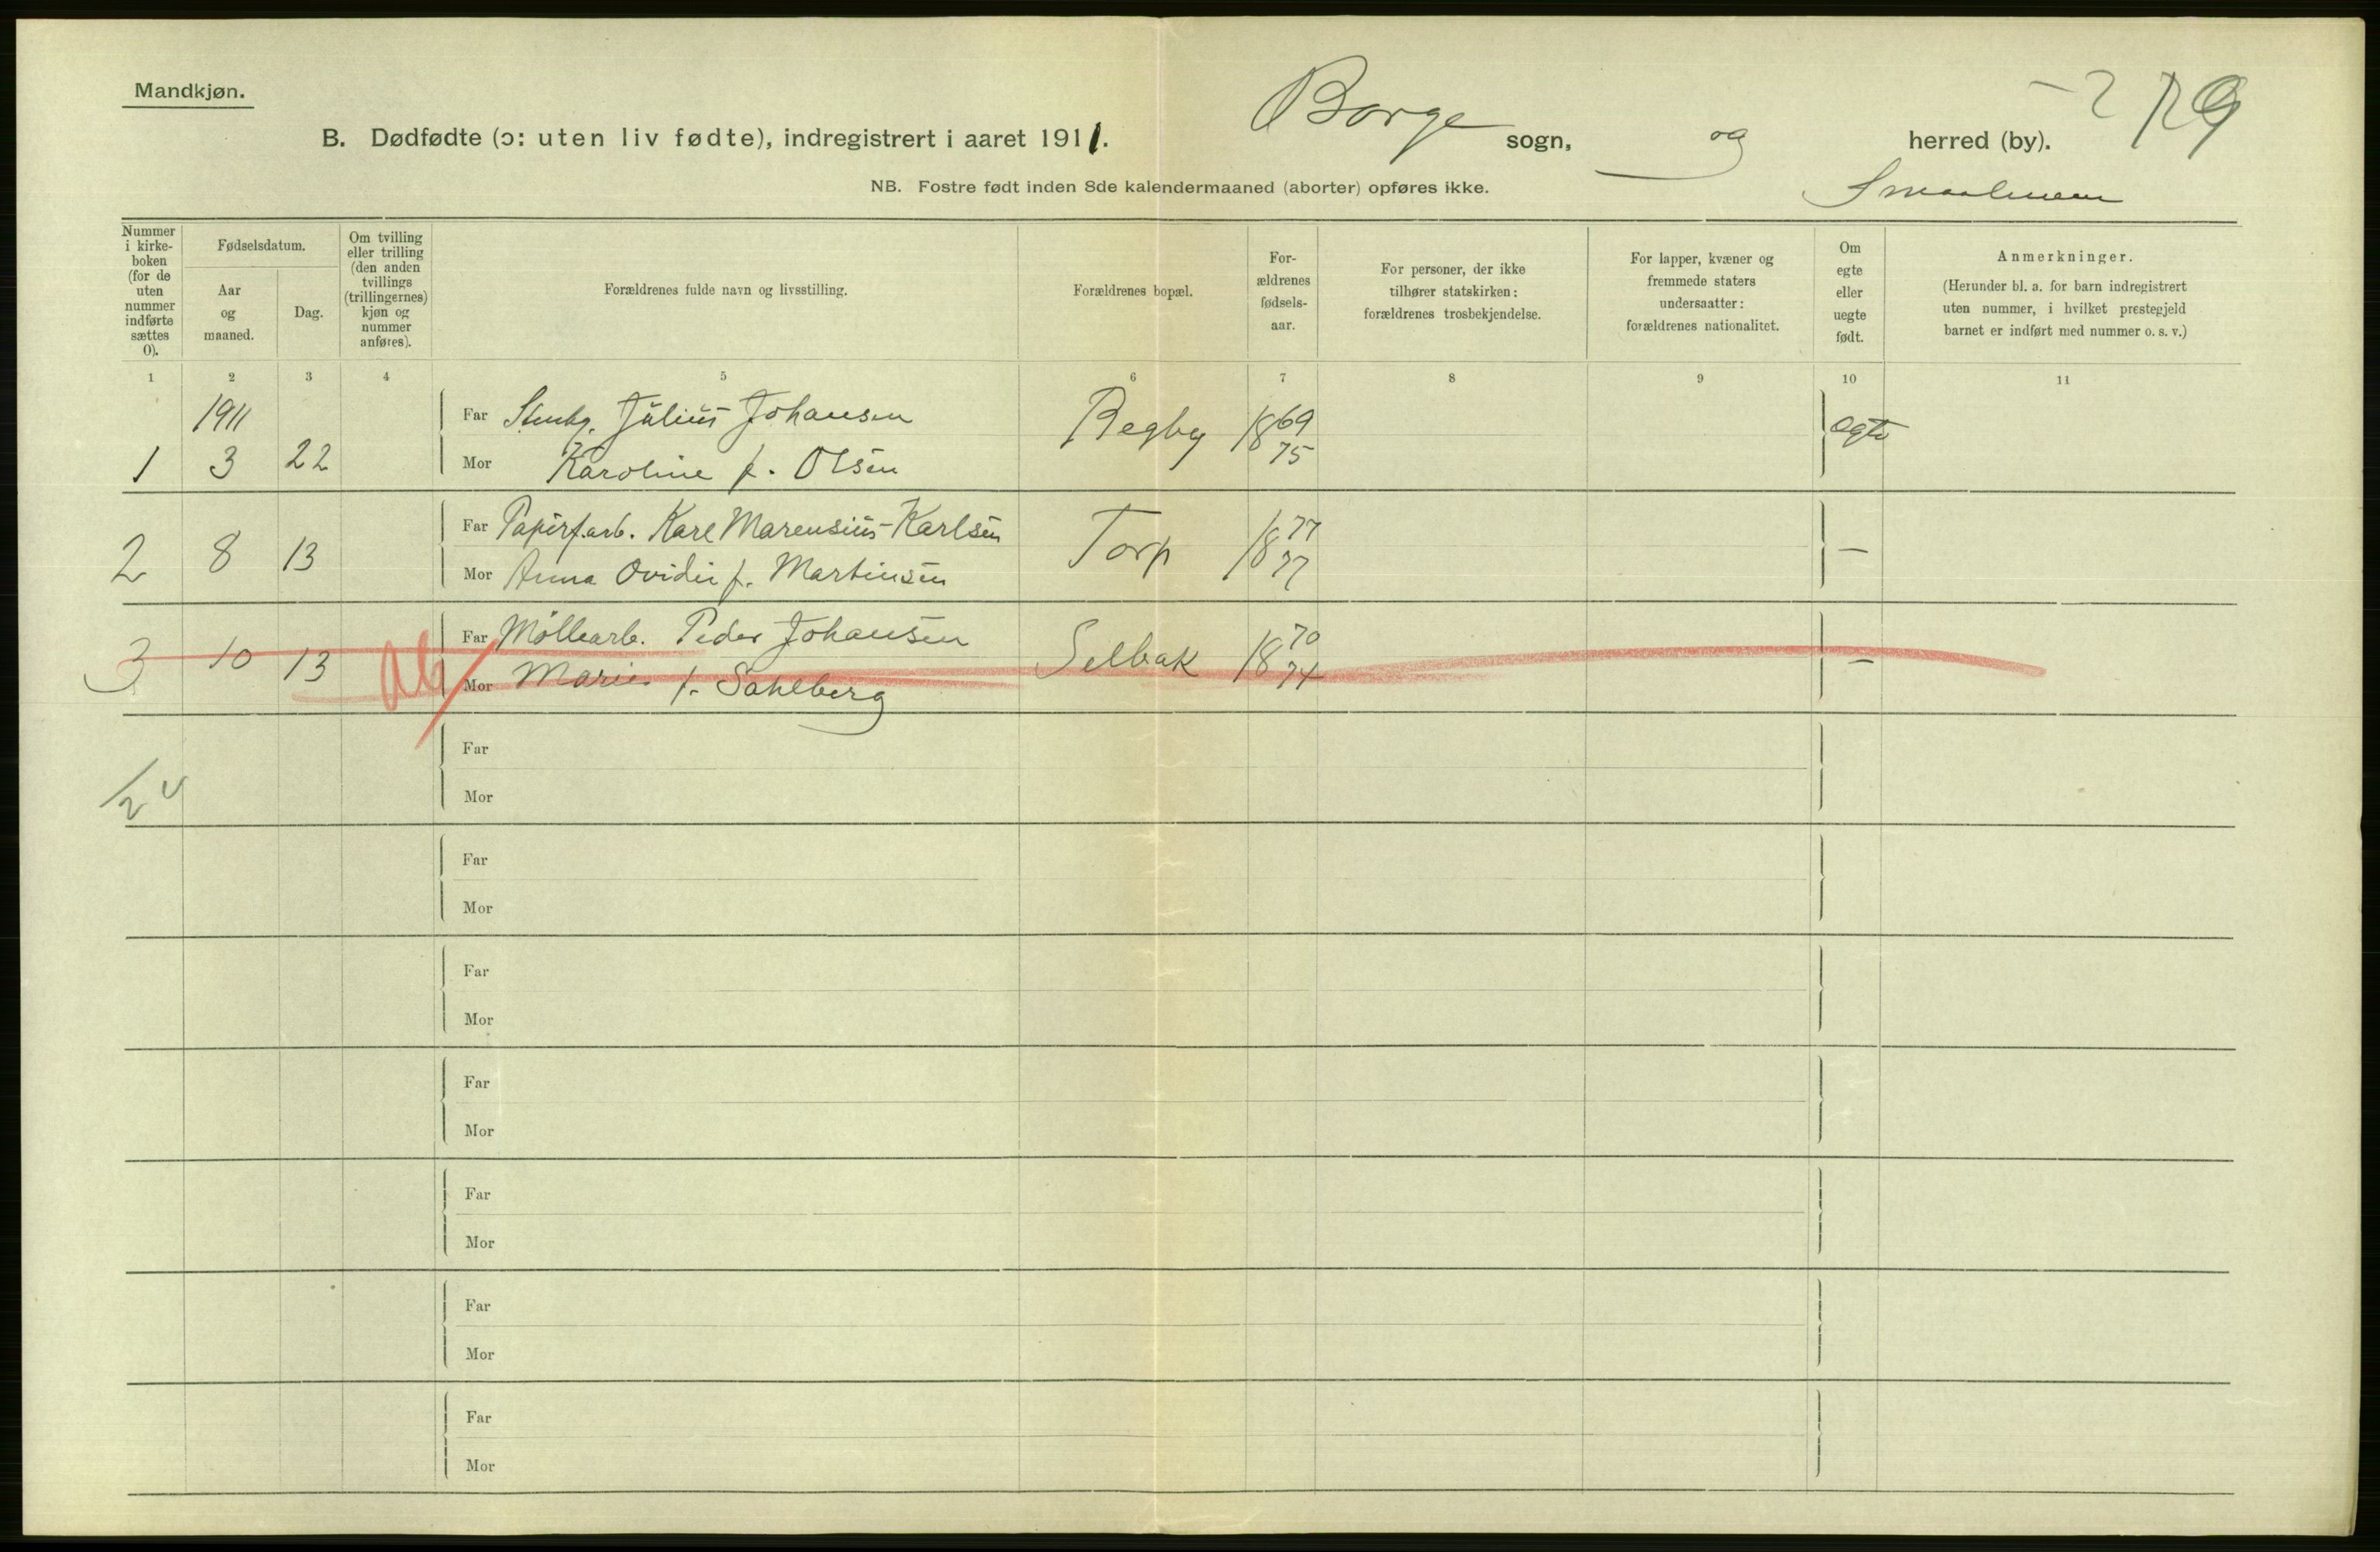 Mandkjøn.
B. Dødfødte (ɔ: uten liv fødte), indregistrert i aaret 1911. Borge sogn, og herred (by).
Smaalenene
NB. Fostre født inden 8de kalendermaaned (aborter) opføres ikke.
Nummer i kirke-boken (for de uten nummer indførte sættes 0).
Fødselsdatum.
Aar og maaned.
Dag.
Om tvilling eller trilling (den anden tvillings (trillingernes) kjøn og nummer anføres).
Forældrenes fulde navn og livsstilling.
Forældrenes bopæl.
For-ældrenes fødsels-aar.
For personer, der ikke tilhører statskirken: forældrenes trosbekjendelse.
For lapper, kvæner og fremmede staters undersaatter: forældrenes nationalitet.
Om egte eller uegte født.
Anmerkninger.
(Herunder bl. a. for barn indregistrert uten nummer, i hvilket prestegjeld barnet er indført med nummer o. s. v.)
1 2 3 4 5 6 7 8 9 10 11
1911 Far Stenhg. Julius Johansen Begby 1869 egte
1 3 22 Mor Karoline f. Olsen 75
Far Papirf.arb. Karl Marensius Karlsen Torp 1877 —
2 8 13 Mor Anna Ovidie f. Martinsen 77
Far Møllearb. Peder Johansen Selbak 1870 —
3 10 13 Ab Mor Marie f. Sahlberg 74
Far
Mor
Far
Mor
Far
Mor
Far
Mor
Far
Mor
Far
Mor
Far
Mor